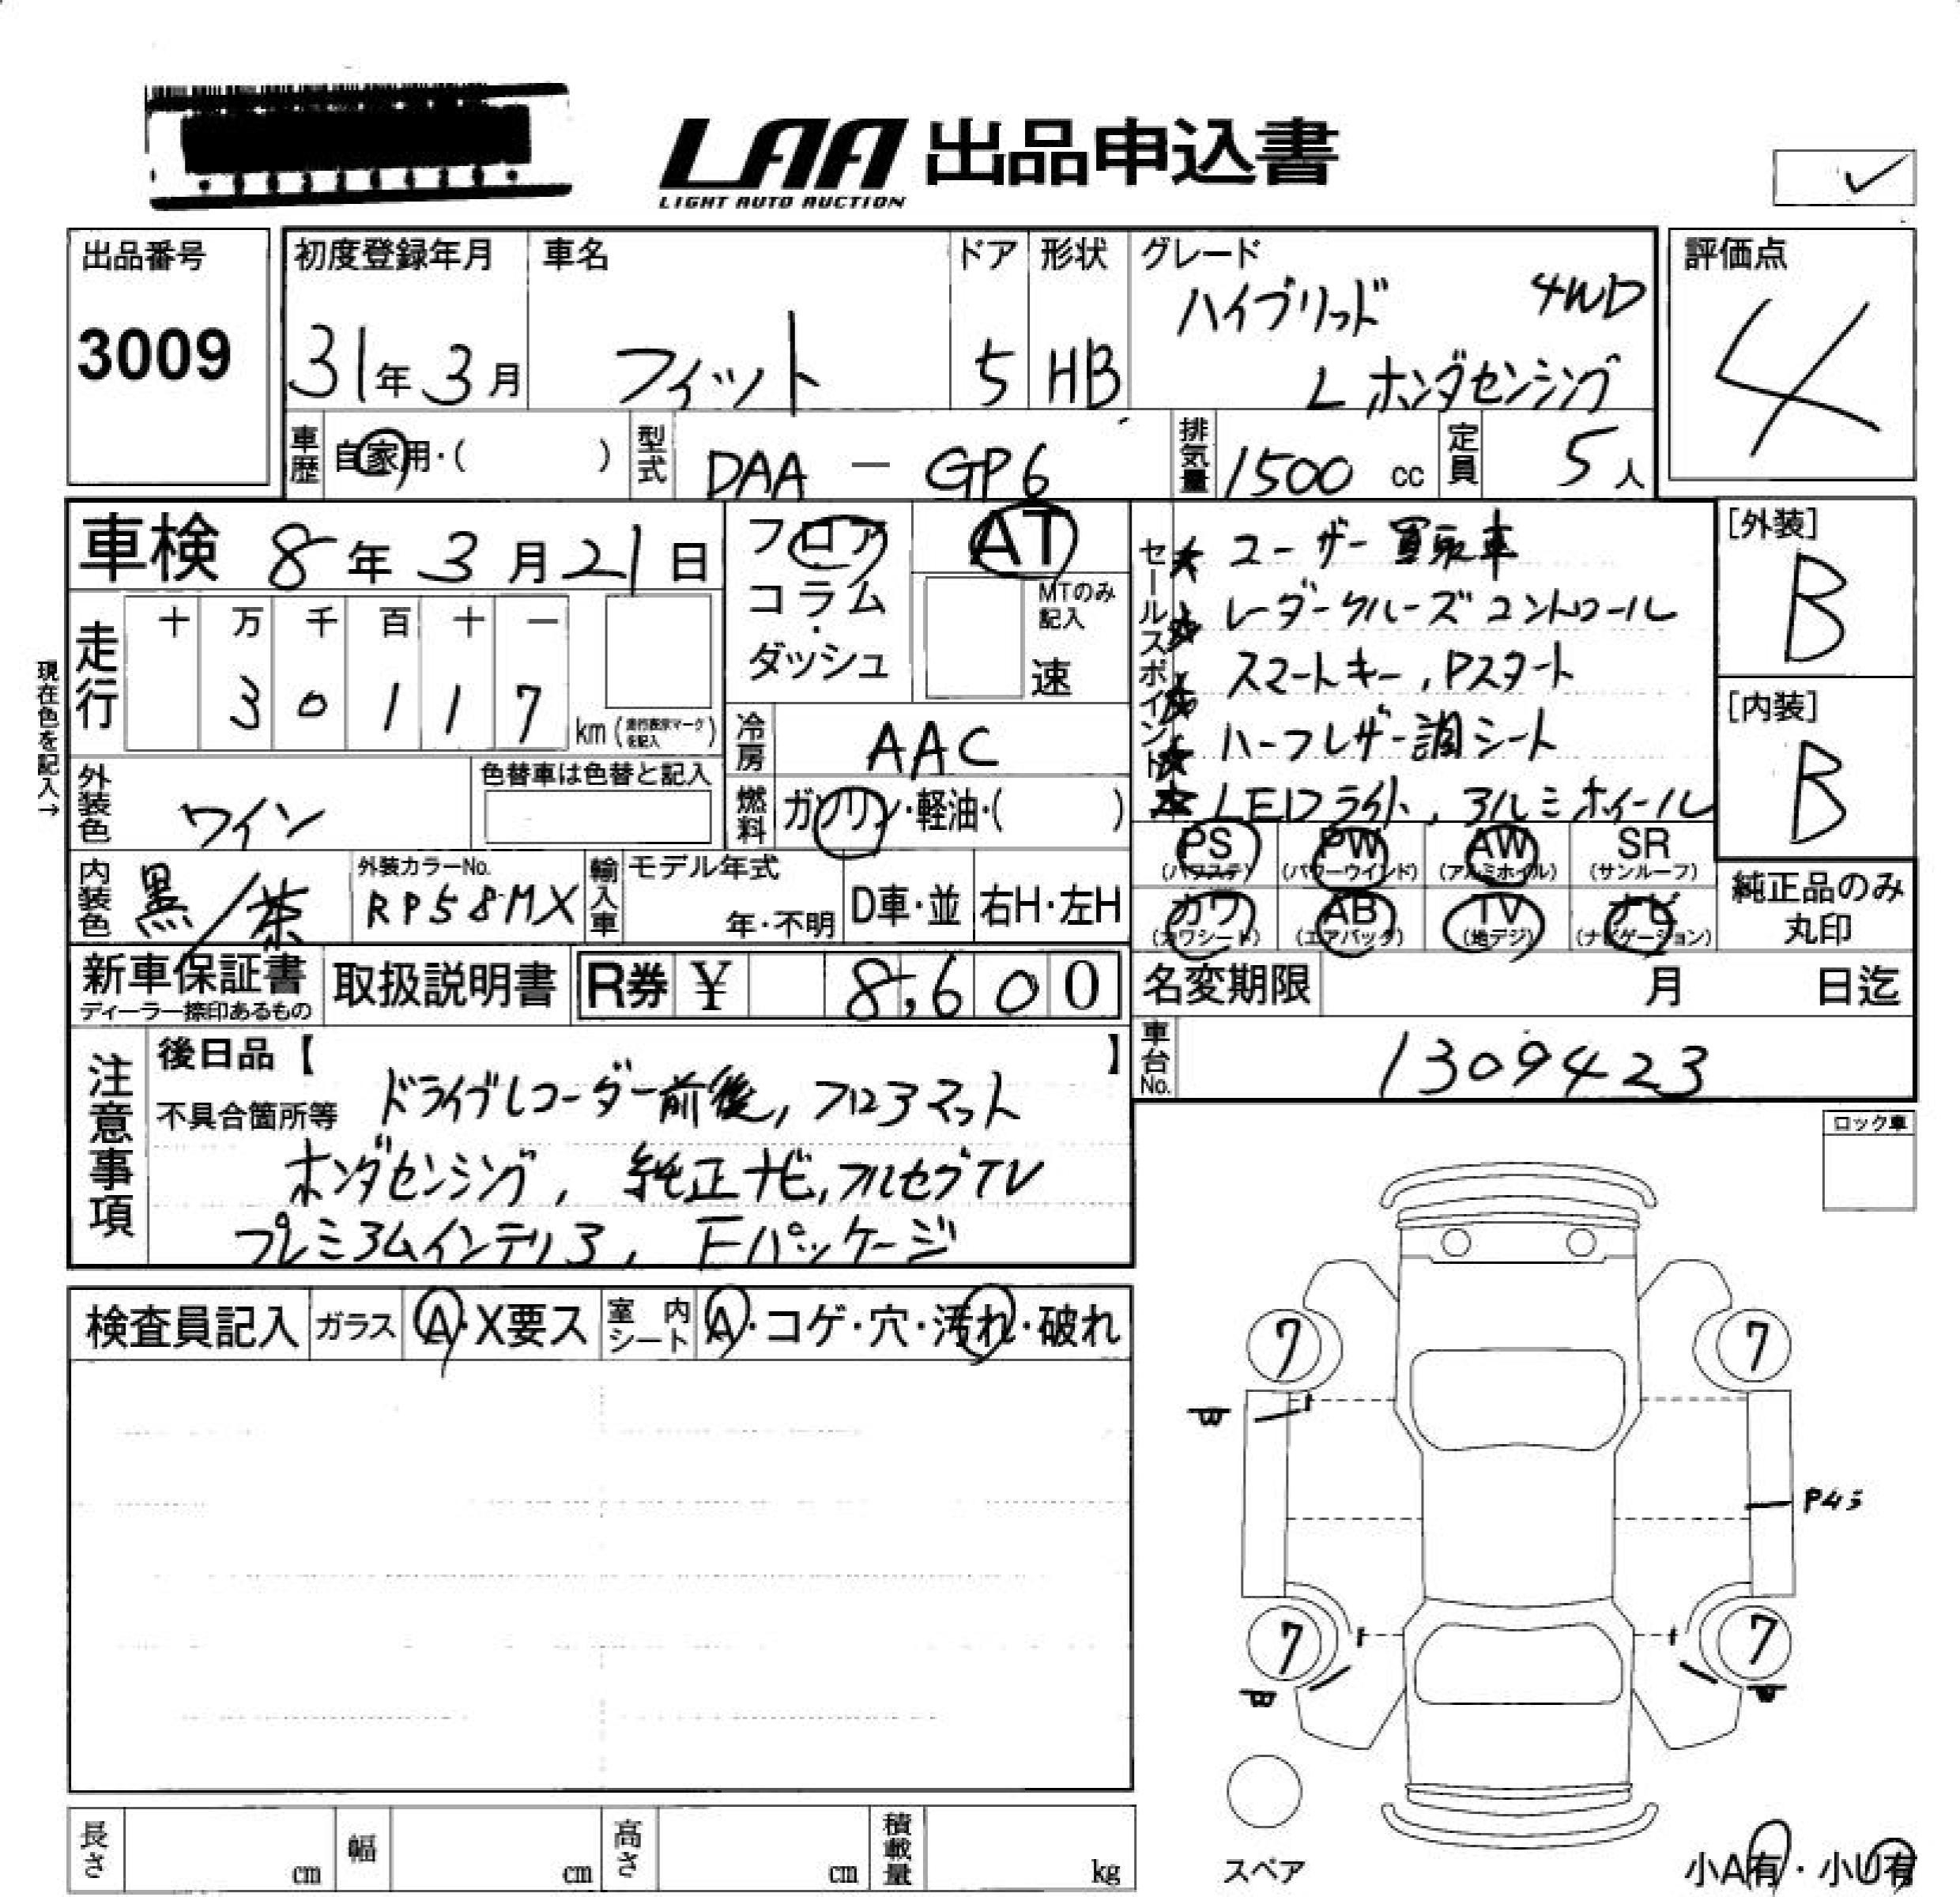 LAA 出品申込書
LIGHT AUTO AUCTION
出品番号
3009
初度登録年月
31年3月
車名
フィット
ドア
5
形状
HB
グレード
ハイブリッド 4WD
L ホンダセンシング
評価点
4
車歴
自家用・( )
型式
DAA - GP6
排気量
1500 cc
定員
5人
車検 8年3月21日
フロア
コラム
・
ダッシュ
AT
MTのみ
記入
速
現在色を記入→
走行
十 万 千 百 十 一
3 0 1 1 7
km (走行表示マークを記入)
冷房
AAC
燃料
ガソリン・軽油・( )
外装色
ワイン
色替車は色替と記入
内装色
黒/茶
外装カラーNo.
RP58MX
輸入車
モデル年式
年・不明
D車・並
右H・左H
セールスポイント
★ ユーザー買取車
★ レーダークルーズコントロール
★ スマートキー, Pスタート
★ ハーフレザー調シート
★ LEDライト, アルミホイール
[外装]
B
[内装]
B
PS
(パワステ)
PW
(パワーウインド)
AW
(アルミホイル)
SR
(サンルーフ)
カワ
(カワシート)
AB
(エアバック)
TV
(地デジ)
ナビ
(ナビゲーション)
純正品のみ
丸印
新車保証書
ディーラー捺印あるもの
取扱説明書
R券 ¥ 8,600
名変期限 月 日迄
車台No.
1309423
注意事項
後日品【 】
不具合箇所等 ドライブレコーダー前後, フロアマット
ホンダセンシング, 純正ナビ, フルセグTV
プレミアムインテリア, Fパッケージ
ロック車
検査員記入
ガラス
A・X要ス
室内
シート
A・コゲ・穴・汚れ・破れ
7
7
W
P43
7
7
W
W
スペア
小A有・小U有
長さ cm
幅 cm
高さ cm
積載量 kg